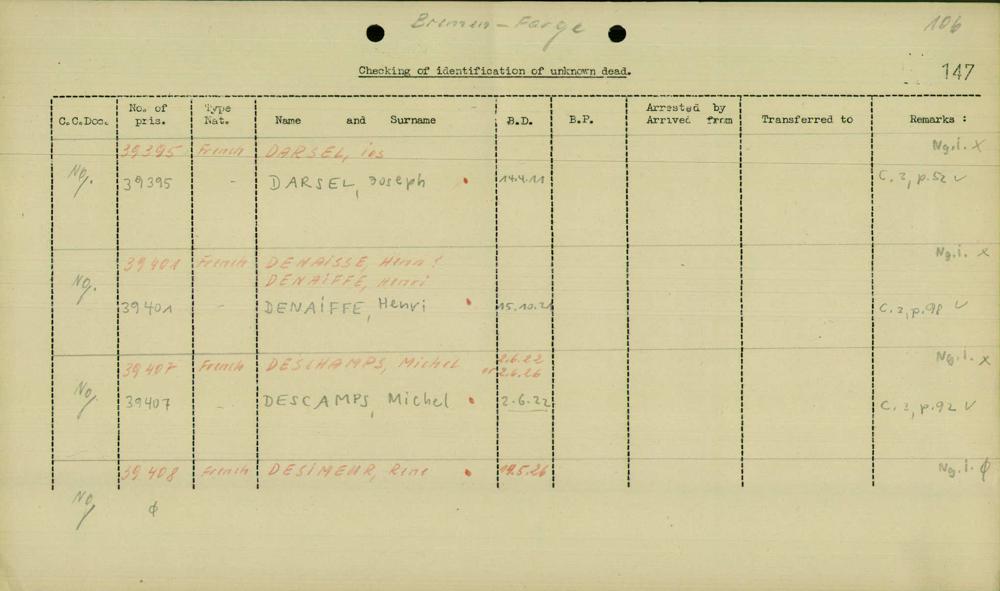 Bremen - Farge 106
Checking of identification of unknown dead. 147
C.C.Doc. No. of pris. Type Nat. Name and Surname B.D. B.P. Arrested by Arrived from Transferred to Remarks :
39395 French DARSEL, Jos Ng.i. x
Ng. 39395 - DARSEL, Joseph 14.4.11 C.3, p.52 v
39401 French DENAISSE, Henri ? Ng.i. x
DENAIFFE, Henri
Ng. 39401 - DENAIFFE, Henri 15.10.21 C.3, p.98 v
39407 French DESCHAMPS, Michel 2.6.22 Ng.i. x
or 2.6.26
Ng. 39407 - DESCAMPS, Michel 2.6.22 C.3, p.92 v
39408 French DESIMEUR, Rene 19.5.26 Ng.i. ϕ
Ng. ϕ